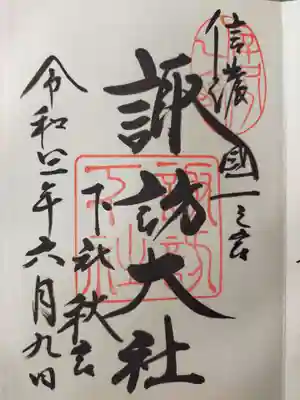 信濃國一之宮
諏訪大社
下社秋宮
令和四年六月九日